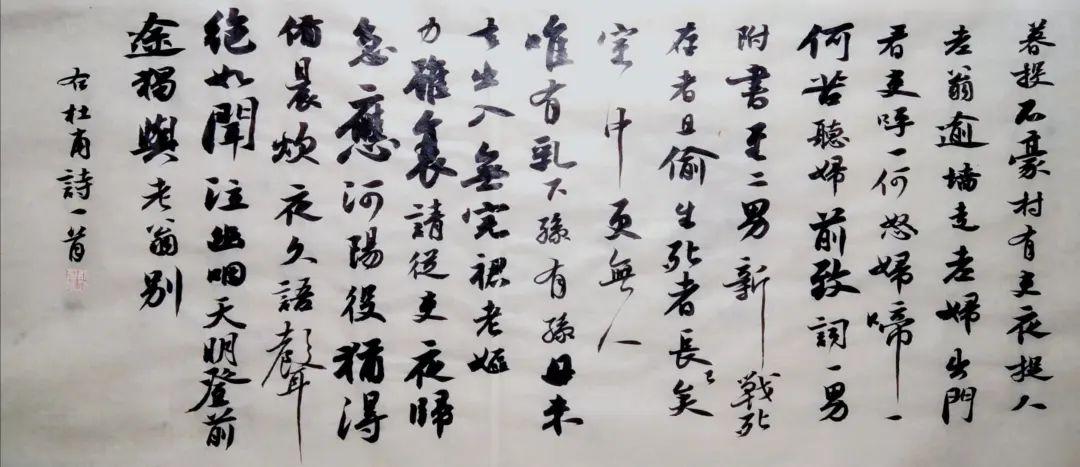 暮投石豪村有吏夜捉人
老翁逾墙走老婦出門
看吏呼一何怒婦啼一
何苦聽婦前致詞一男
附書至二男新戰死
存者且偷生死者長已矣
室中更無人
唯有乳下孫有孫母未
去出入無完裙老嫗
力雖衰請從吏夜歸
急應河陽役猶得
備晨炊夜久語聲
絕如聞泣幽咽天明登前
途獨與老翁別
右杜甫詩一首